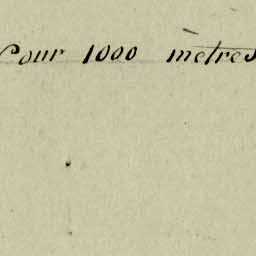 Pour 1000 mètres